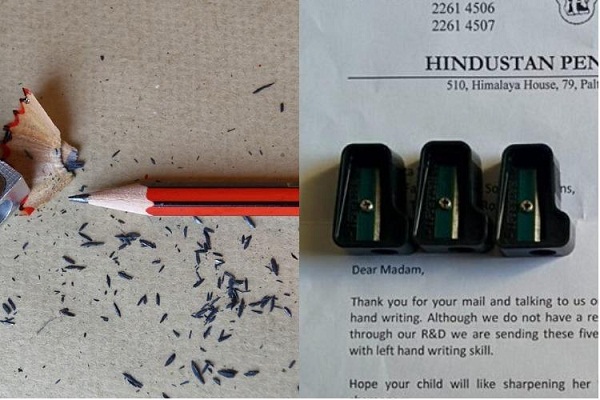 2261 4506
2261 4507
HINDUSTAN PEN
510, Himalaya House, 79, Palt
Dear Madam,
Thank you for your mail and talking to us o
hand writing. Although we do not have a re
through our R&D we are sending these five
with left hand writing skill.
Hope your child will like sharpening her